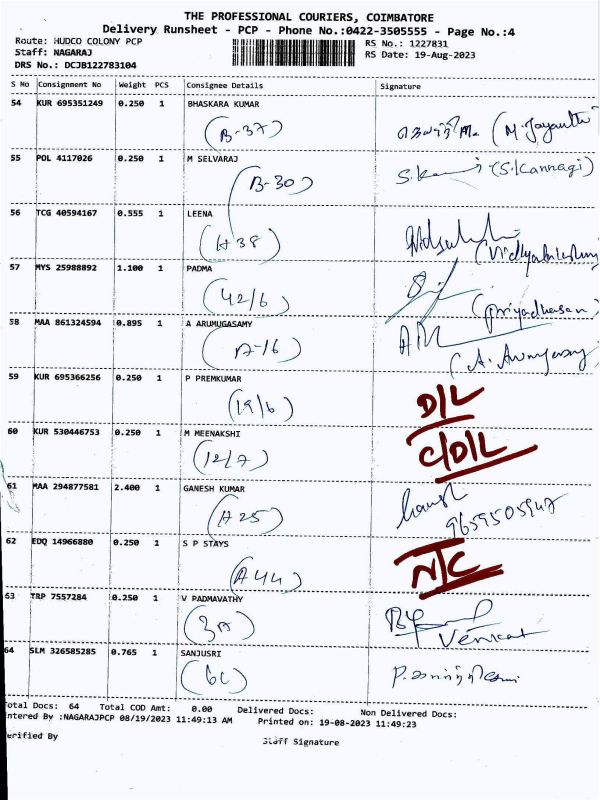 THE PROFESSIONAL COURIERS, COIMBATORE
Delivery Runsheet - PCP - Phone No.:0422-3505555 - Page No.:4
Route: HUDCO COLONY PCP RS No.: 1227831
Staff: NAGARAJ RS Date: 19-Aug-2023
DRS No.: DCJB122783104
S No Consignment No Weight PCS Consignee Details Signature
54 KUR 695351249 0.250 1 BHASKARA KUMAR
(B-37) (M. Jayanthi)
55 POL 4117026 0.250 1 M SELVARAJ
(B-30) (S. Kannagi)
56 TCG 40594167 0.555 1 LEENA
(A 38)
57 MYS 25988892 1.100 1 PADMA
(42/6)
58 MAA 861324594 0.895 1 A ARUMUGASAMY
(A-16)
59 KUR 695366256 0.250 1 P PREMKUMAR
(19/6) D/L
60 KUR 530446753 0.250 1 M MEENAKSHI
(12/7) C/D/L
61 MAA 294877581 2.400 1 GANESH KUMAR
(A 25) 9659505947
62 EDQ 14966880 0.250 1 S P STAYS
(A 44) N/C
63 TRP 7557284 0.250 1 V PADMAVATHY
(3A) Venkat
64 SLM 326585285 0.765 1 SANJUSRI
(6C)
Total Docs: 64 Total COD Amt: 0.00 Delivered Docs: Non Delivered Docs:
ntered By :NAGARAJPCP 08/19/2023 11:49:13 AM Printed on: 19-08-2023 11:49:23
erified By Staff Signature